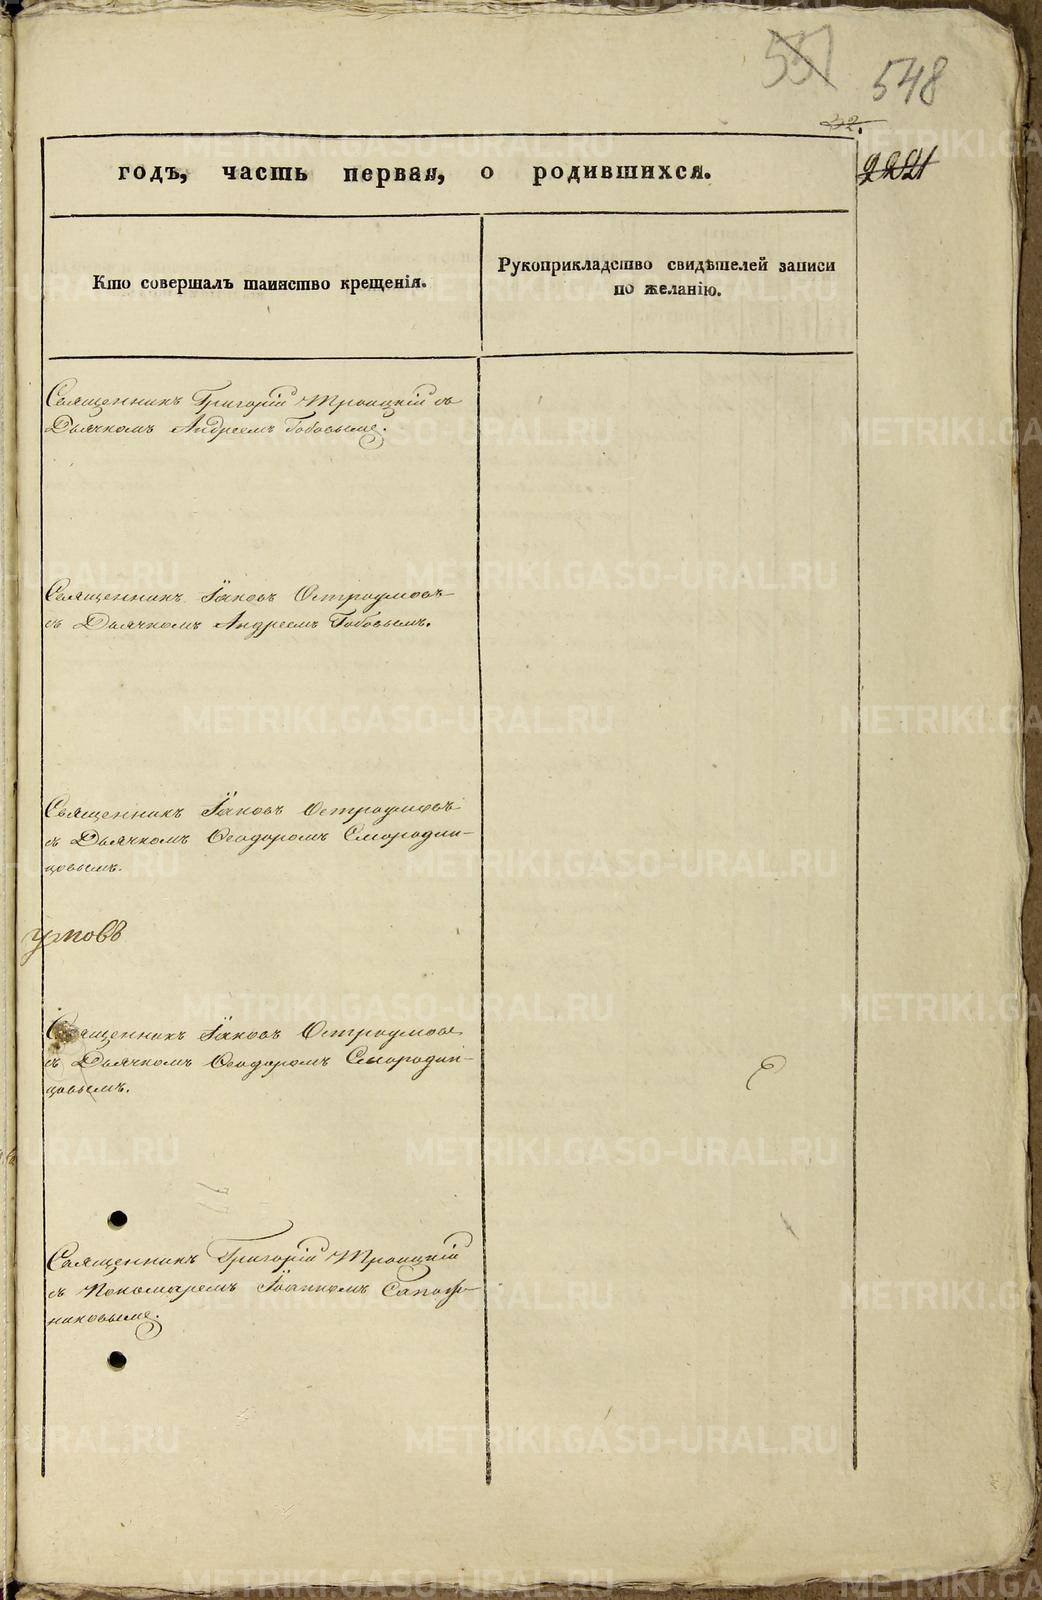 557
548
22.
2221
годъ, часть первая, о родившихся.
Кто совершалъ таинство крещенія.
Рукоприкладство свидѣтелей записи
по желанію.
Священникъ Григорій Троицкій съ
Дьячкомъ Андреемъ Бобовымъ.
Священникъ Іаковъ Остроумовъ
съ Дьячкомъ Андреемъ Бобовымъ.
Священникъ Іаковъ Остроумовъ
съ Дьячкомъ Ѳеодоромъ Смородин-
цовымъ.
умовъ
Священникъ Іаковъ Остроумовъ
съ Дьячкомъ Ѳеодоромъ Смородин-
цовымъ.
Священникъ Григорій Троицкій
съ Пономаремъ Іоанномъ Сапож-
никовымъ.
METRIKI.GASO-URAL.RU